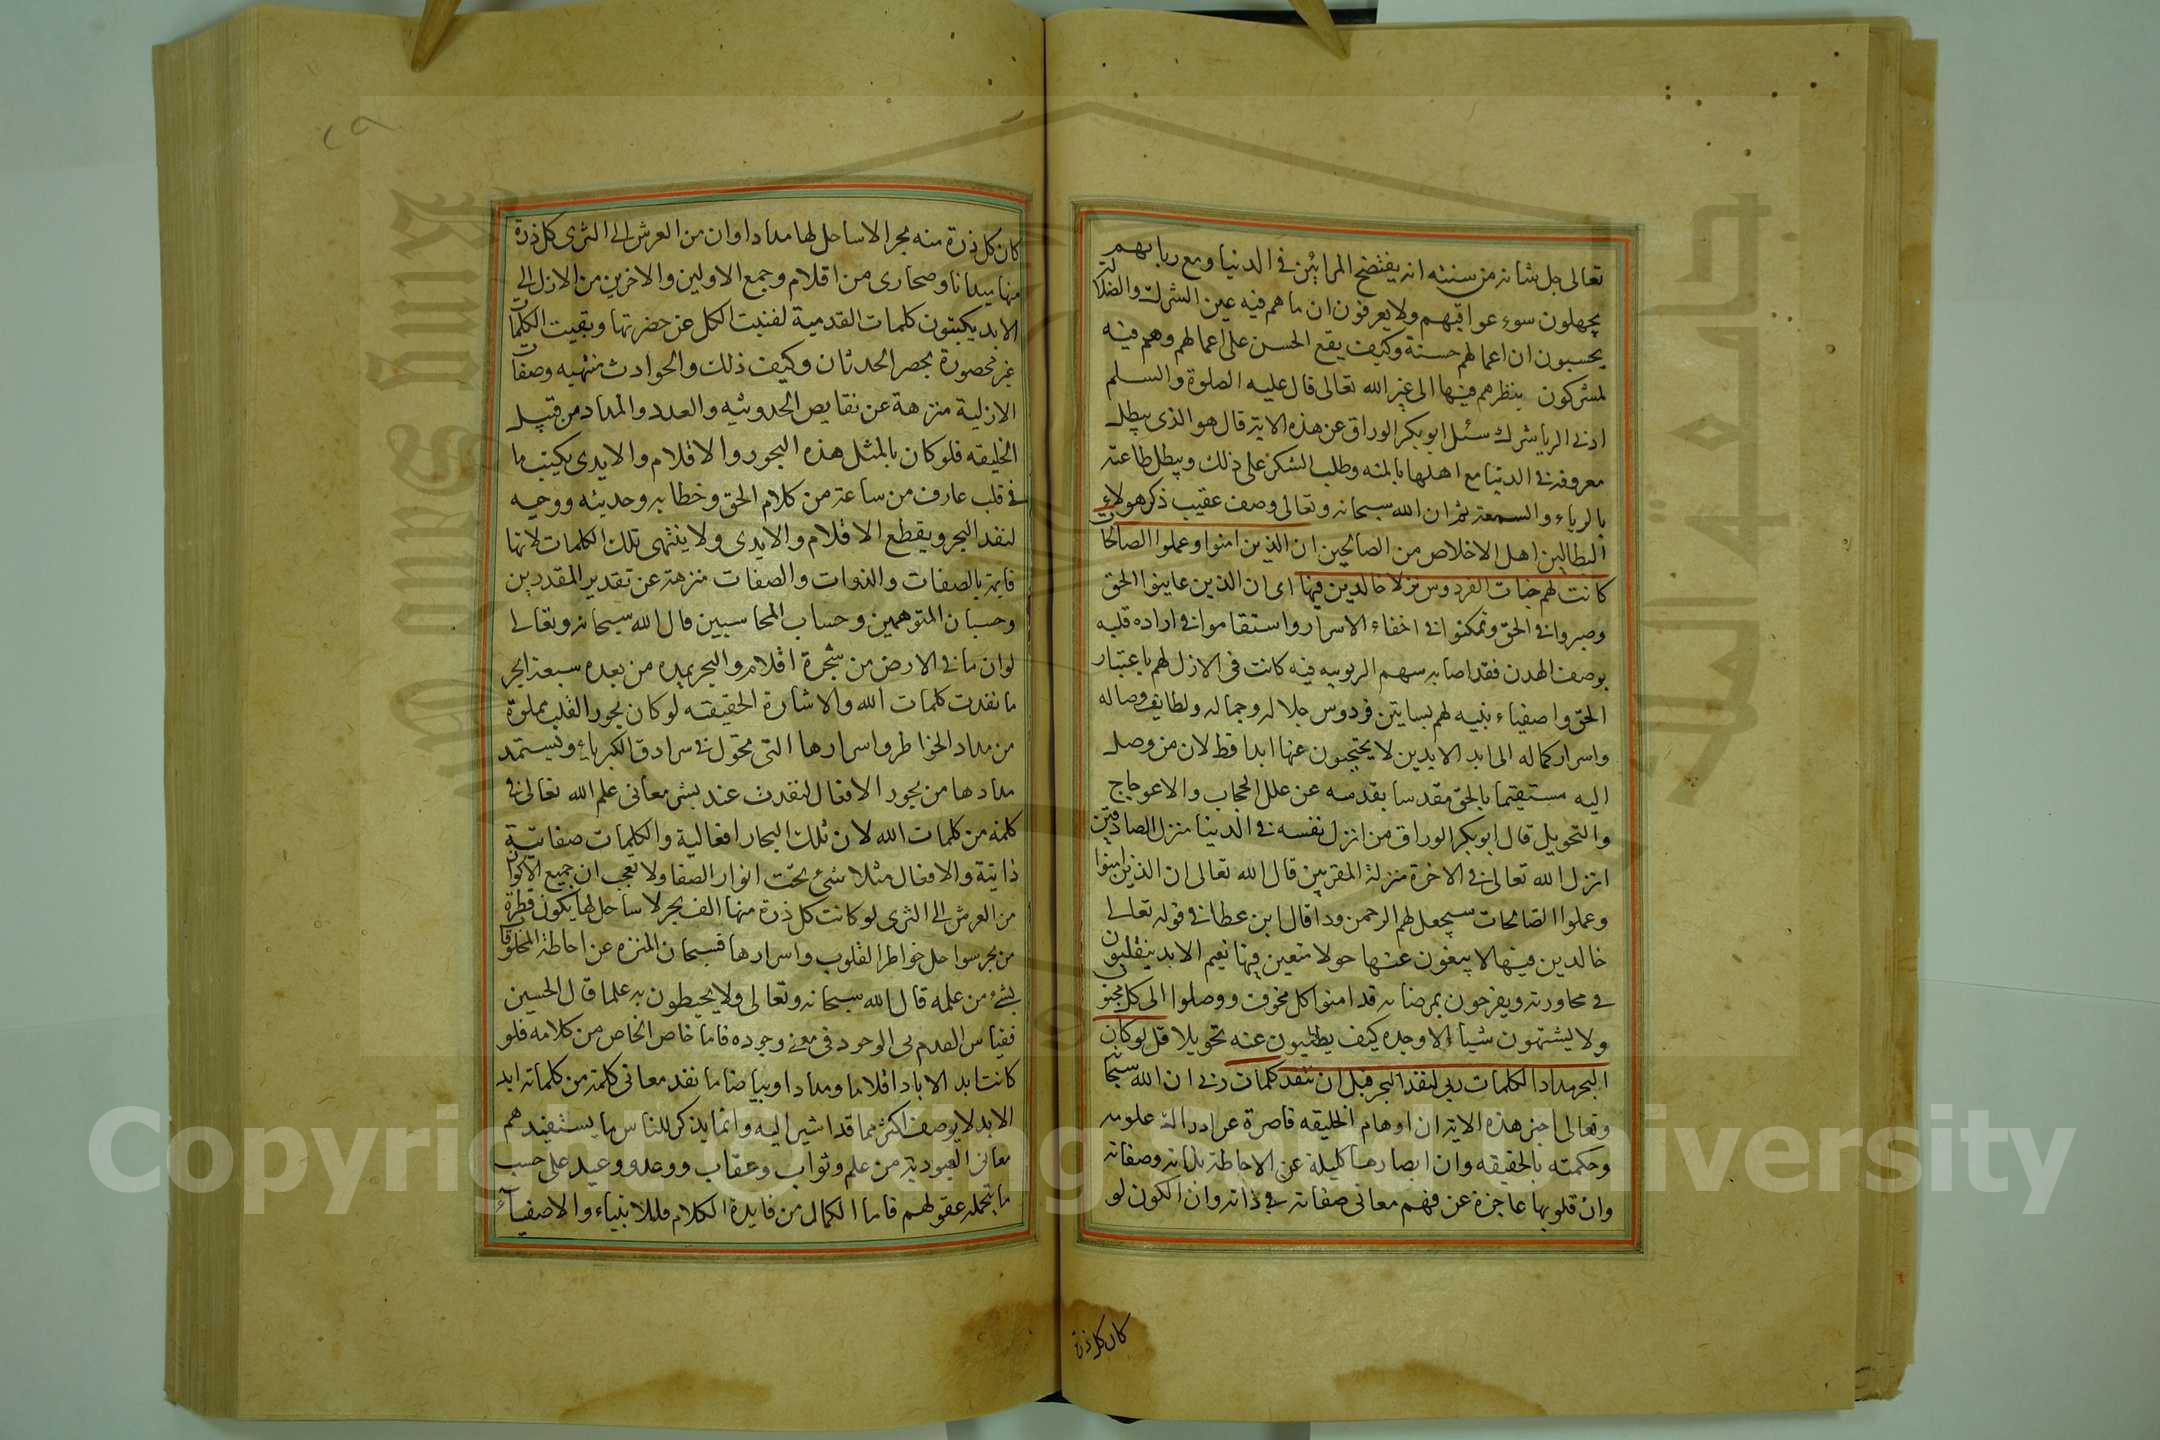 تعالى جل شانه من سنته انه يفتضح المرائين في الدنيا ومع ربابهم
يجهلون سوء عواقبهم ولا يعرفون ان ما هم فيه عين الشرك والضلالة
يحسبون ان اعمالهم حسنة وكيف يقع الحسن على اعمالهم وهم فيه
لمشركون بنظرهم فيها الى غير الله تعالى قال عليه الصلوة والسلم
ادنى الريا شرك سئل ابو بكر الوراق عن هذه الاية قال هو الذى يبطل
معروفه في الدنيا مع اهلها بالمنه وطلب الشكر على ذلك ويبطل طاعته
بالرياء والسمعة ثم ان الله سبحانه وتعالى وصف عقيب ذكر هولاء
البطالين اهل الاخلاص من الصالحين ان الذين امنوا وعملوا الصالحات
كانت لهم جنات الفردوس نزلا خالدين فيها اى ان الذين عاينوا الحق
وصبروا في الحق وتمكنوا في اخفاء الاسرار واستقاموا في اراده قلبه
بوصف الهدن فقد اصابه سهم الربوبيه فيه كانت في الازل لهم باعتبار
الحق واصفياء بنيه لهم بساتين فردوس جلاله وجماله ولطايف وصاله
واسرار كماله الى ابد الابدين لا يحتجبون عنها ابدا قط لان من وصل
اليه مستقيما بالحق مقدسا بقدسه عن علل الحجاب والاعوجاج
والتحويل قال ابو بكر الوراق من انزل نفسه في الدنيا منزل الصادقين
انزل الله تعالى في الاخرة منزلة المقربين قال الله تعالى ان الذين امنوا
وعملوا الصالحات سيجعل لهم الرحمن ودا قال ابن عطا في قوله تعالى
خالدين فيها لا يبغون عنها حولا متعين فيها نعيم الابد ينقلبون
في مجاورته ويفرحون بمرضاته قد امنوا كل مخوف ووصلوا الى كل محبوب
ولا يشتهون شيا الا وجده كيف يطلبون عنه تحويلا قل لو كان
البحر مدادا لكلمات ربى لنفد البحر قبل ان تنفد كلمات ربي ان الله سبحانه
وتعالى اخبر هذه الاية ان اوهام الخليقه قاصرة عن ادراك علومه
وحكمته بالحقيقه وان ابصارها كليلة عن الاحاطة بذاته وصفاته
وان قلوبها عاجزة عن فهم معانى صفاته في ذاته وان الكون لو
كان كل ذرة
كان كل ذرة منه بحرا لا ساحل لها مدادا وان من العرش الى الثرى كل ذرة
منها ميدانا وصحارى من اقلام وجمع الاولين والاخرين من الازل الى
الابد يكتبون كلمات القدمية لفنيت الكل عن حضرتها وبقيت الكلمات
غير محصورة بحصر الحدثان وكيف ذلك والحوادث منتهيه وصفات
الازلية منزهة عن نقايص الحدوثيه والعدد والمداد من قبل
الخليقه فلو كان بالمثل هذه البحور والاقلام والايدى يكتب ما
في قلب عارف من ساعة من كلام الحق وخطابه وحديثه ووحيه
لنفد البحر ويقطع الاقلام والايدى ولا ينتهى تلك الكلمات لانها
قايمة بالصفات والذوات والصفات منزهة عن تقدير المقددين
وحسبان المتوهمين وحساب المحاسبين قال الله سبحانه وتعالى
لو ان ما في الارض من شجرة اقلام والبحر يمده من بعده سبعة ابحر
ما نفدت كلمات الله والاشارة الحقيقته لو كان بحور القلب مملوة
من مداد الخواطر واسرارها التى تحول في سرادق الكبرياء ويستمد
مدادها من بحور الافعال لنفدت عند بش معانى علم الله تعالى في
كلمة من كلمات الله لان تلك البحار افعالية والكلمات صفاتية
ذاتية والافعال متلاشئ تحت انوار الصفا ولا تعجب ان جميع الاكوان
من العرش الى الثرى لو كانت كل ذرة منها الف بحر لا ساحل لها يكون قطرة
من بحر سواحل خواطر القلوب واسرارها فسبحان المنزه عن احاطة المخلوقات
بشئ من علمه قال الله سبحانه وتعالى ولا يحيطون به علما قال الحسين
فقياس العدم بى الوجود في معنى وجوده فاما خاص الخاص من كلامه فلو
كانت ابد الاباد اقلاما ومدادا وبياضا ما نفد معانى كلمة من كلماته ابد
الابد لا يوصف اكثر مما قد اشير اليه وانما يذكر للناس ما يستفيدهم
معانى العبودية من علم وثواب وعقاب ووعد ووعيد على حسب
ما تحمله عقولهم فاما الكمال من فايدة الكلام فللانبياء والاصفياء
Copyright © King Saud University
King Saud University
جامعة الملك سعود